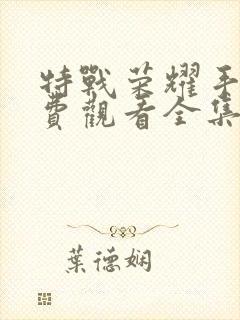 特戰榮耀手
費觀看全集
葉德嫻